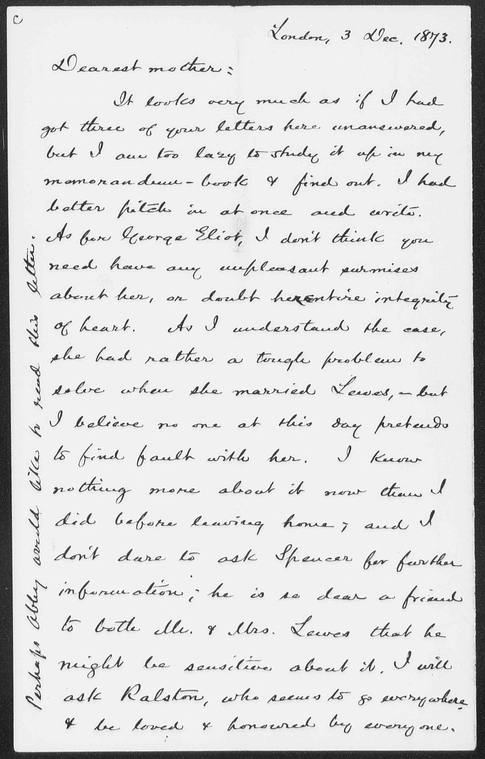 C
London, 3 Dec. 1873.
Dearest mother:
It looks very much as if I had
got three of your letters here unanswered,
but I am too lazy to study it up in my
memorandum-book & find out. I had
better pitch in at once and write.
As for George Eliot, I don't think you
need have any unpleasant surmises
about her, or doubt her entire integrity
of heart. As I understand the case,
she had rather a tough problem to
solve when she married Lewes, – but
I believe no one at this day pretends
to find fault with her. I know
nothing more about it now than I
did before leaving home; and I
don't dare to ask Spencer for further
information; he is so dear a friend
to both Mr. & Mrs. Lewes that he
might be sensitive about it. I will
ask Ralston, who seems to go everywhere
& be loved & honoured by everyone.
Perhaps Abby would like to read this letter.